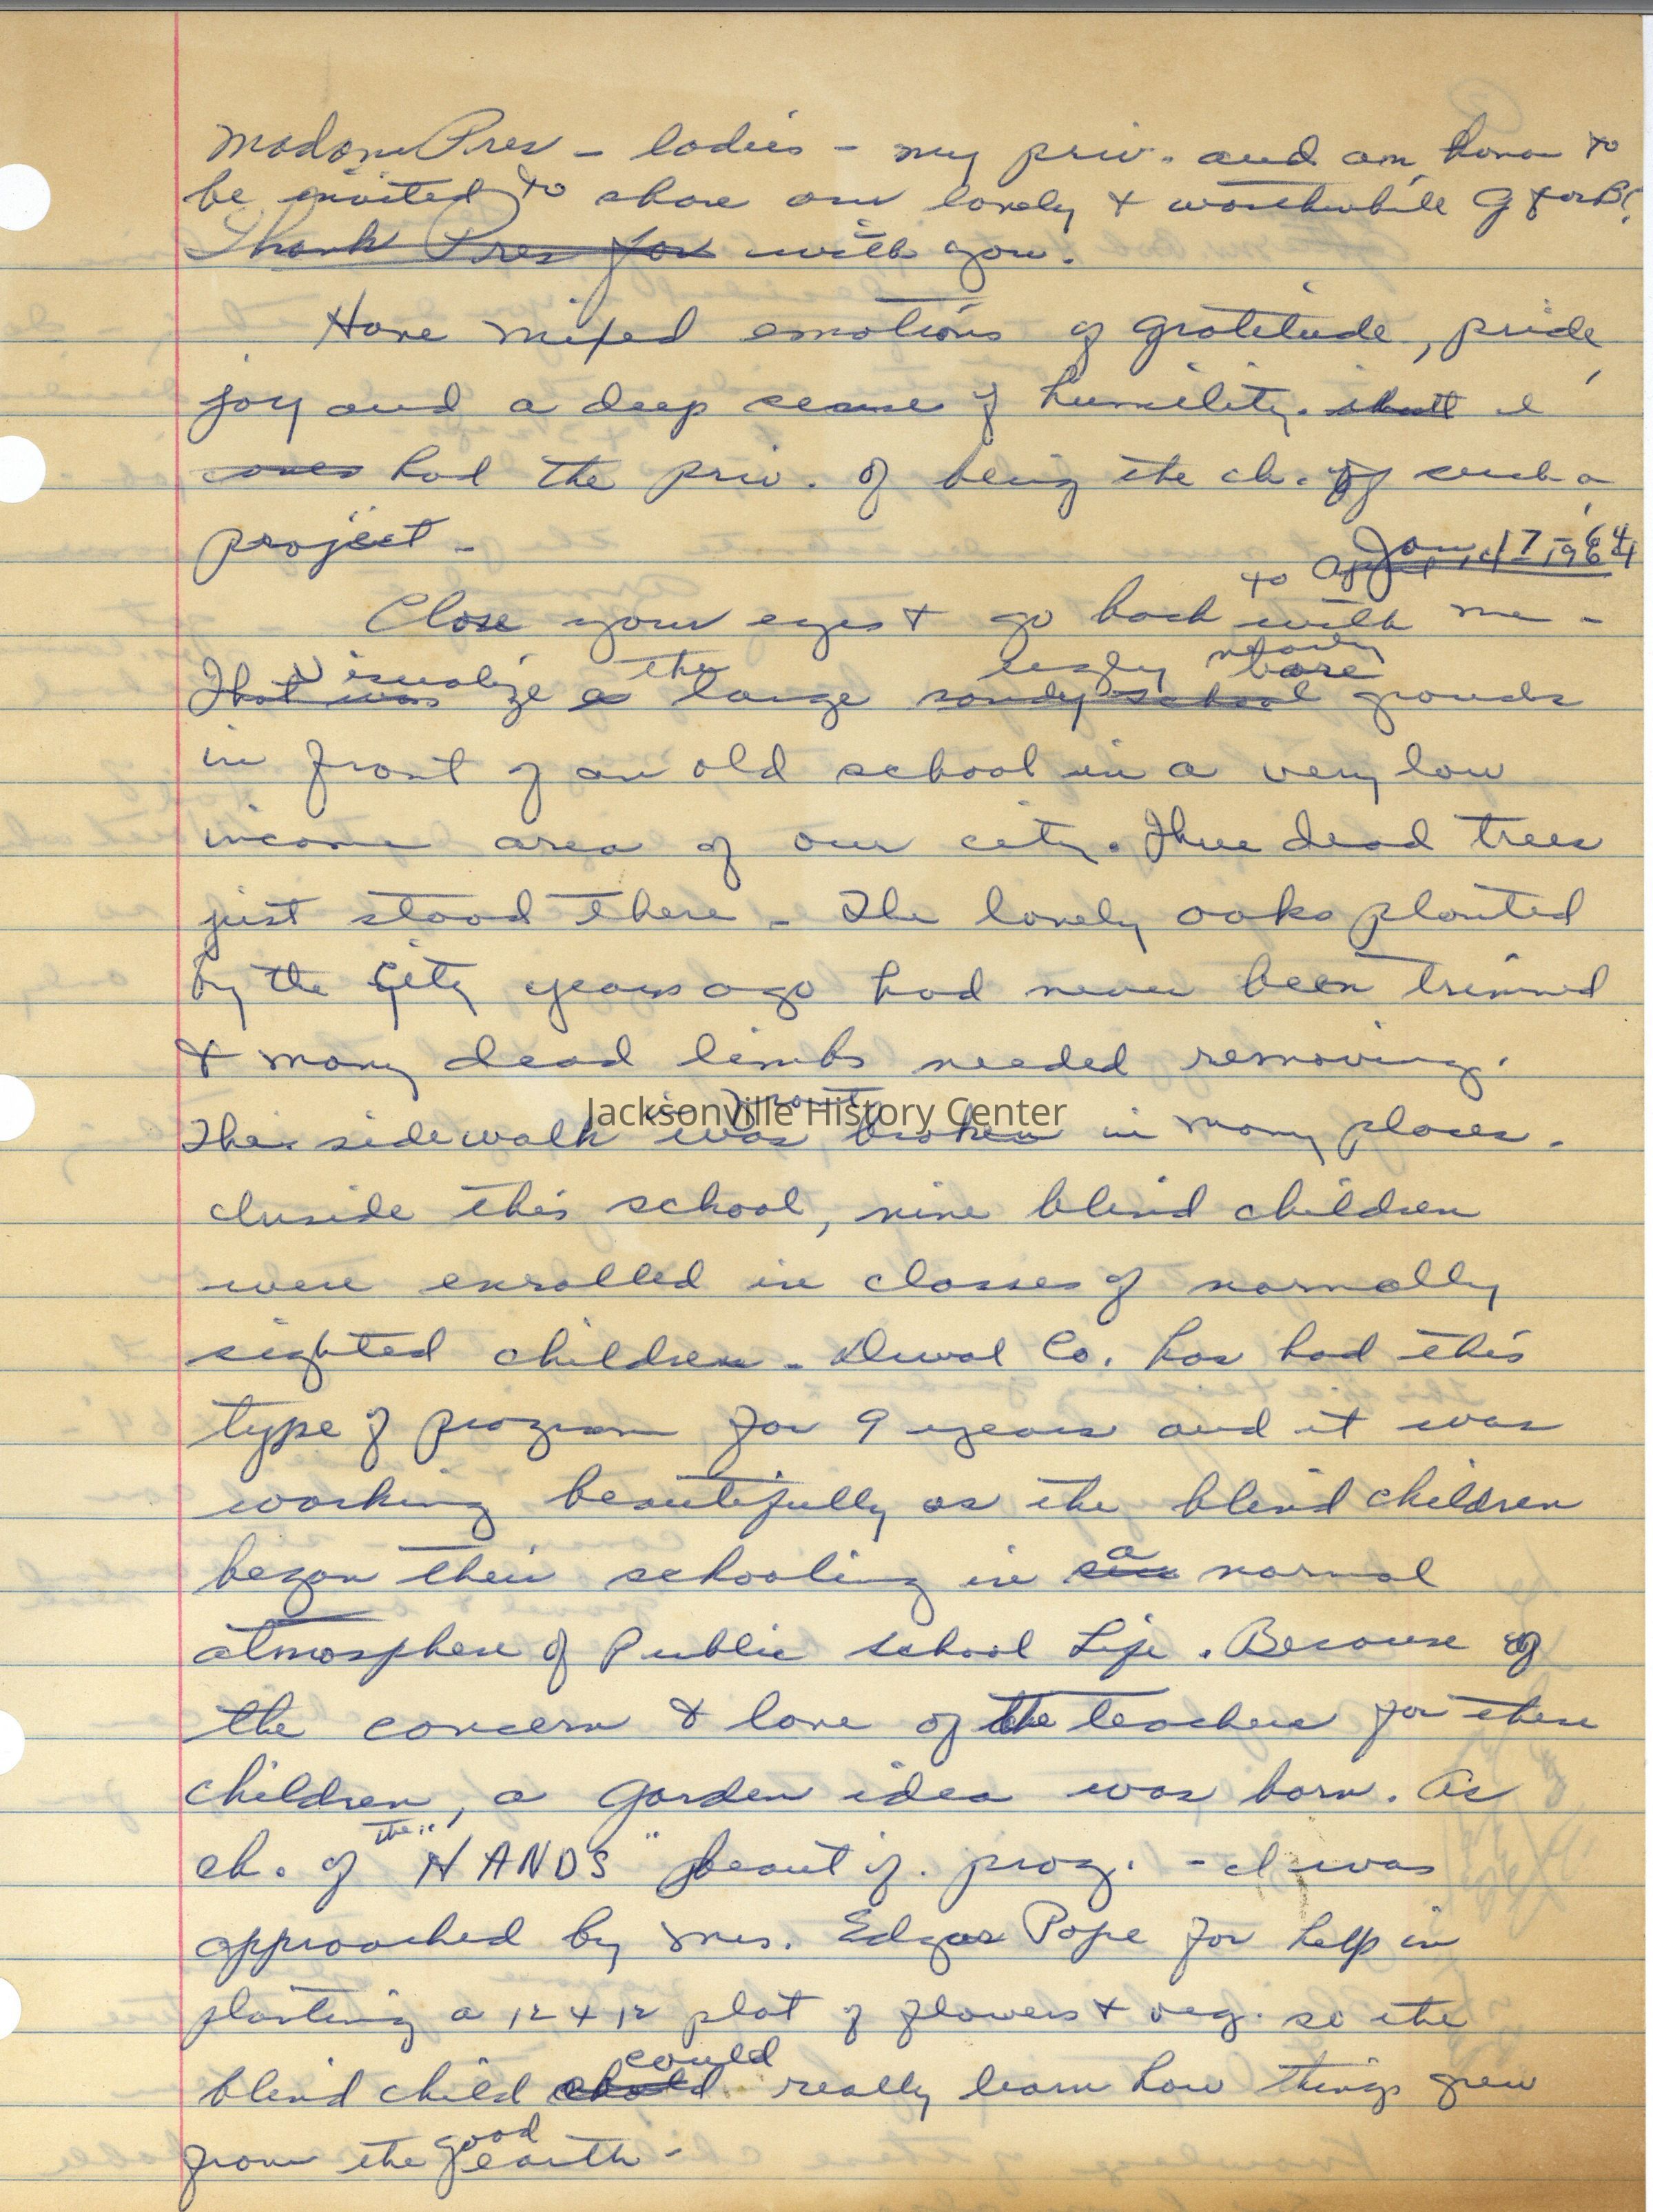 Madam Pres - ladies - my priv. and an honor to
be invited to share our lovely & worthwhile G for B.
Thank Pres for with you.
Have mixed emotions of gratitude, pride,
joy and a deep sense of humility. that I
had the priv. of being the ch. of such a
project -
Jan. 17 - 1964
to April
Close your eyes & go back with me -
visualize the ugly nearly bare
That was a large sandy school grounds
in front of an old school in a very low
income area of our city. Three dead trees
just stood there - The lovely oaks planted
by the City years ago had never been trimmed
& many dead limbs needed removing.
in front
Jacksonville History Center
The sidewalk was broken in many places.
Inside this school, nine blind children
were enrolled in classes of normally
sighted children - Duval Co. has had this
type of program for 9 years and it was
working beautifully as the blind children
began their schooling in a normal
atmosphere of Public School Life. Because of
the concern & love of the teachers for these
children, a garden idea was born. As
ch. of the "HANDS" beautif. prog. - I was
approached by Mrs. Edgar Pope for help in
planting a 12 x 12 plot of flowers & veg. so the
could
blind child should really learn how things grew
from the good earth -